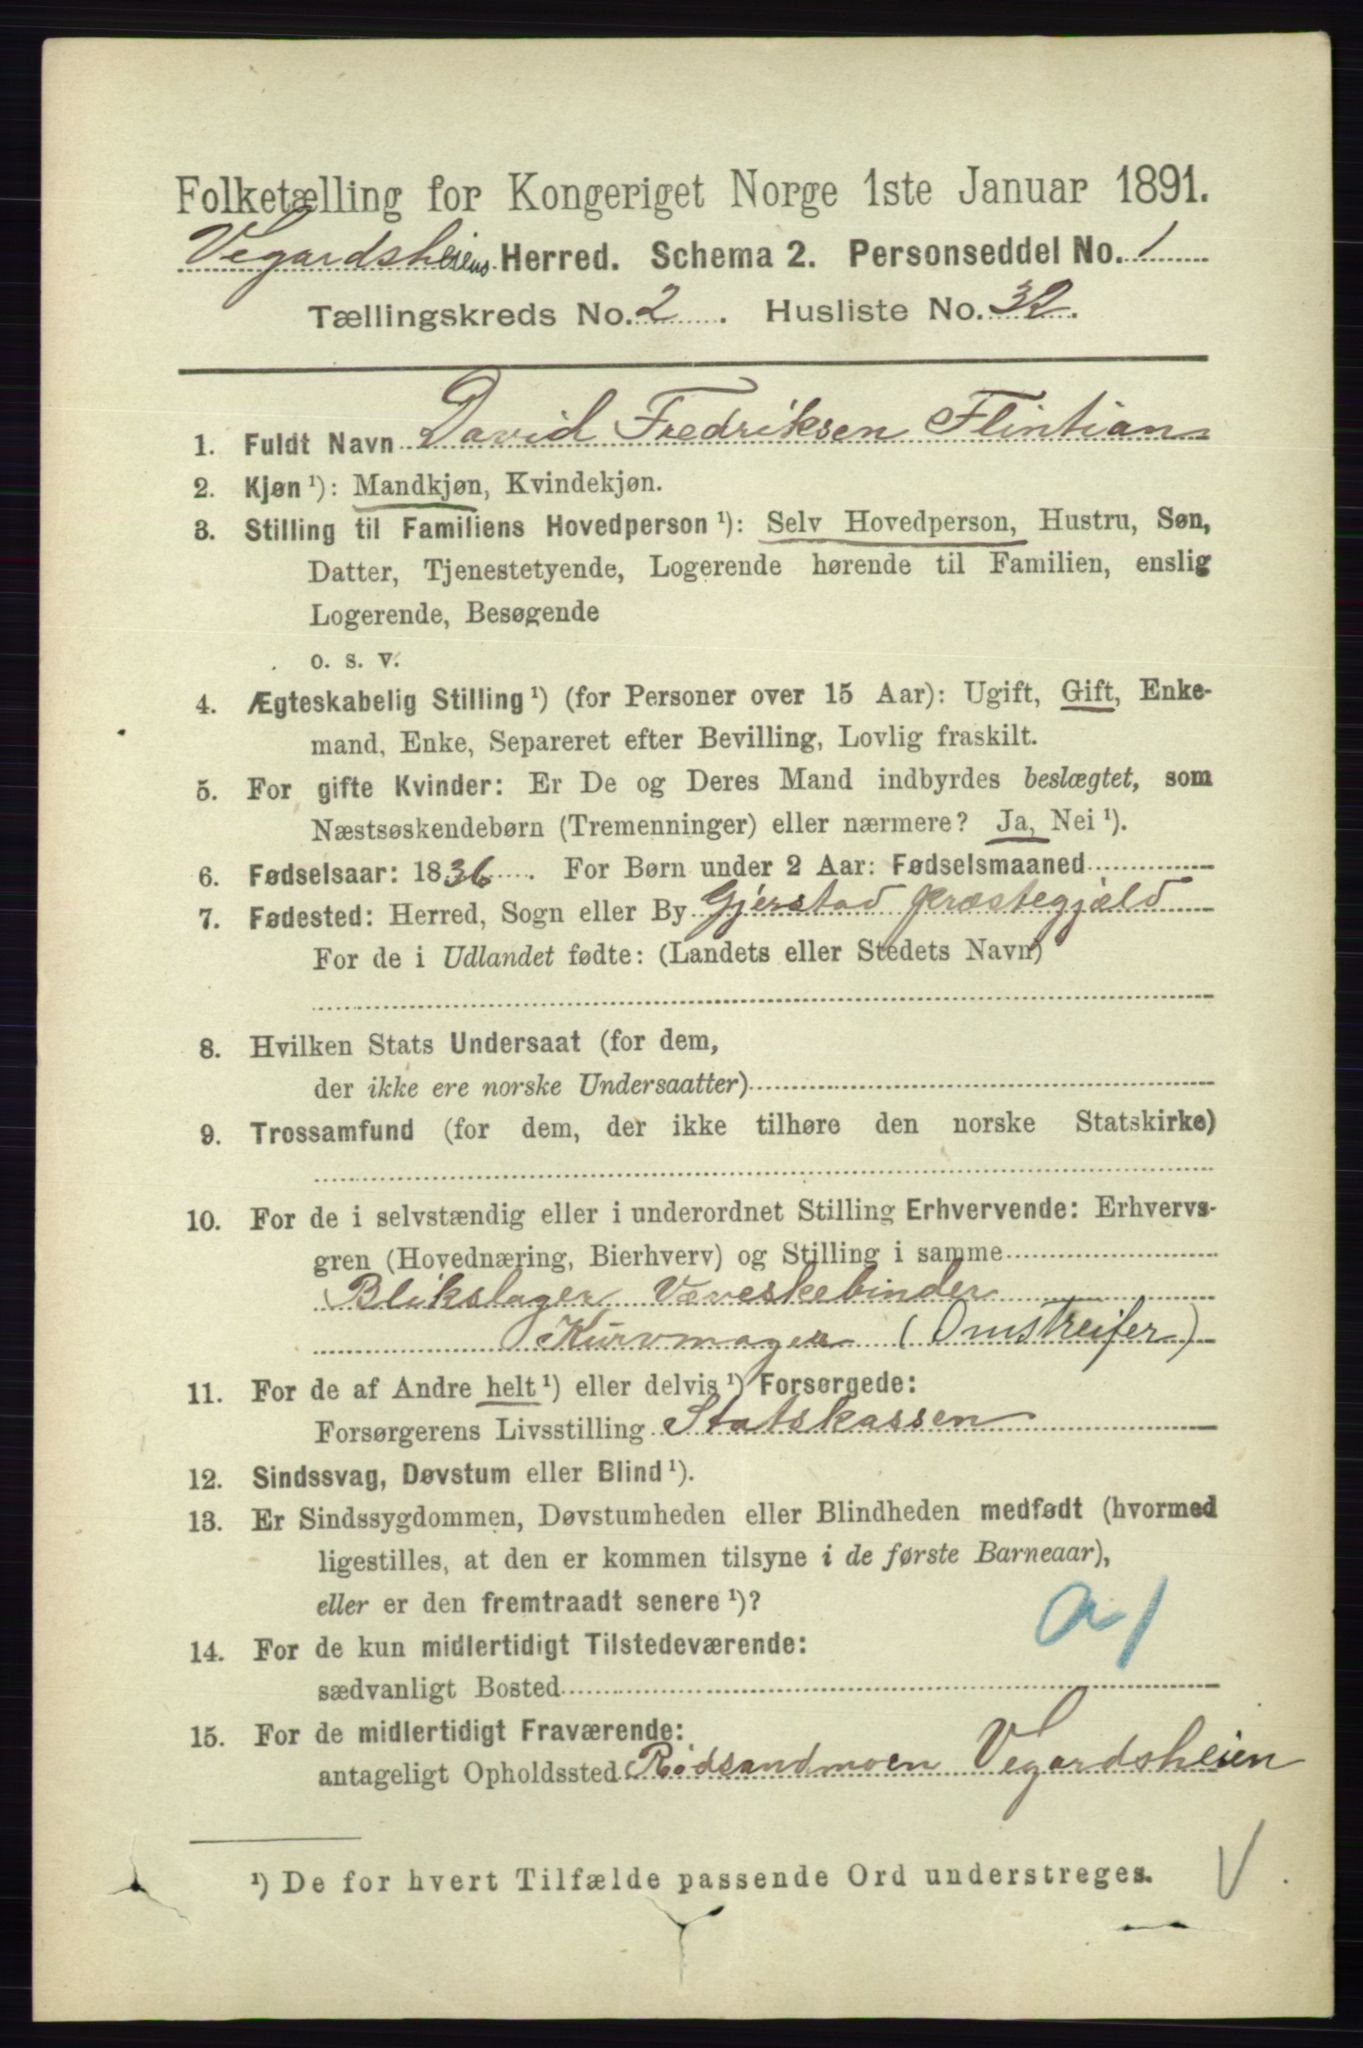 Folketælling for Kongeriget Norge 1ste Januar 1891.
Vegardsheiens Herred. Schema 2. Personseddel No. 1
Tællingskreds No. 2. Husliste No. 32.
1. Fuldt Navn David Fredriksen Flintian
2. Kjøn ¹): Mandkjøn, Kvindekjøn.
3. Stilling til Familiens Hovedperson ¹): Selv Hovedperson, Hustru, Søn,
Datter, Tjenestetyende, Logerende hørende til Familien, enslig
Logerende, Besøgende
o. s. v.
4. Ægteskabelig Stilling ¹) (for Personer over 15 Aar): Ugift, Gift, Enke-
mand, Enke, Separeret efter Bevilling, Lovlig fraskilt.
5. For gifte Kvinder: Er De og Deres Mand indbyrdes beslægtet, som
Næstsøskendebørn (Tremenninger) eller nærmere? Ja, Nei ¹).
6. Fødselsaar: 1836. For Børn under 2 Aar: Fødselsmaaned
7. Fødested: Herred, Sogn eller By Gjerstad Præstegjæld
For de i Udlandet fødte: (Landets eller Stedets Navn)
8. Hvilken Stats Undersaat (for dem,
der ikke ere norske Undersaatter)
9. Trossamfund (for dem, der ikke tilhøre den norske Statskirke)
10. For de i selvstændig eller i underordnet Stilling Erhvervende: Erhvervs-
gren (Hovednæring, Bierhverv) og Stilling i samme
Blikslager Væveskebinder
Kurvmager (Omstreifer)
11. For de af Andre helt ¹) eller delvis ¹) Forsørgede:
Forsørgerens Livsstilling Statskassen
12. Sindssvag, Døvstum eller Blind ¹).
13. Er Sindssygdommen, Døvstumheden eller Blindheden medfødt (hvormed
ligestilles, at den er kommen tilsyne i de første Barneaar),
eller er den fremtraadt senere ¹)?
14. For de kun midlertidigt Tilstedeværende:
sædvanligt Bosted
15. For de midlertidigt Fraværende:
antageligt Opholdssted Rødsandmoen Vegardsheien
¹) De for hvert Tilfælde passende Ord understreges.